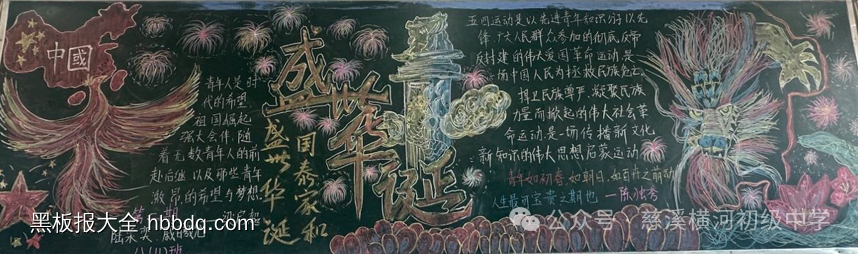 中國
青年人是时
代的希望
祖国崛起
强大会伴随
着无数青年人的前
赴后继以及那些青年
激昂的希望与梦想
盛世华诞
国泰家和
盛世华诞
五四运动是以先进青年知识分子为先
锋广大人民群众参加的彻底反帝
反封建的伟大爱国革命运动是
一场中国人民为拯救民族危亡
捍卫民族尊严凝聚民族
力量而掀起的伟大社会革
命运动是一场传播新文化
新知识的伟大思想启蒙运动
青年如初春,如朝日,如百卉之萌动
人生最可宝贵之期也 —陈独秀
黑板报大全 hbbdq.com
公众号 慈溪横河初级中学